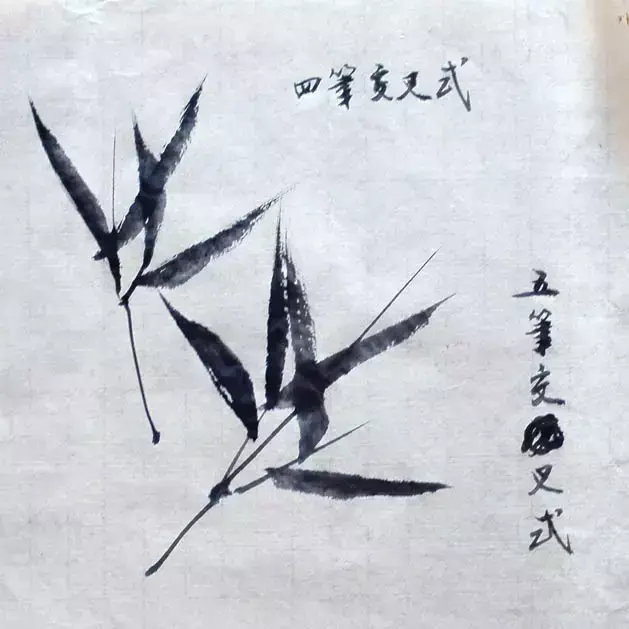 四筆交叉式
五筆交叉式